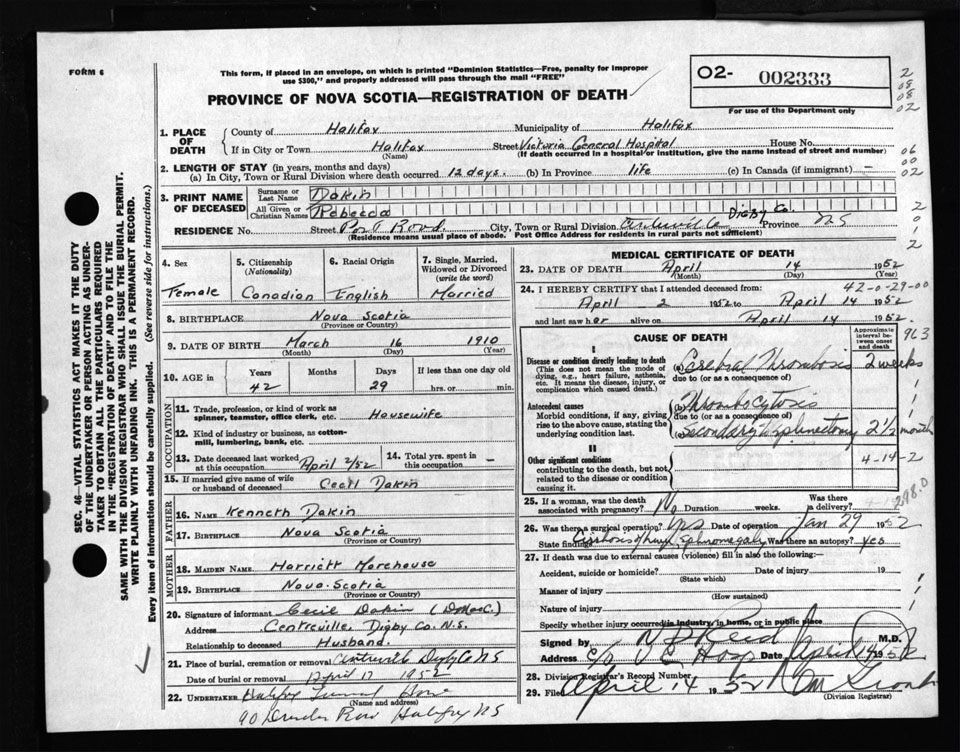 FORM 6
This form, if placed in an envelope, on which is printed "Dominion Statistics—Free, penalty for improper
use $300," and properly addressed will pass through the mail "FREE"
PROVINCE OF NOVA SCOTIA—REGISTRATION OF DEATH
02- 002333
For use of the Department only
2
08
08
02
06
00
02
2
0
1
2
SEC. 46—VITAL STATISTICS ACT MAKES IT THE DUTY
OF THE UNDERTAKER OR PERSON ACTING AS UNDER-
TAKER TO OBTAIN ALL THE PARTICULARS REQUIRED
IN THE "REGISTRATION OF DEATH" AND TO FILE THE
SAME WITH THE DIVISION REGISTRAR WHO SHALL ISSUE THE BURIAL PERMIT.
WRITE PLAINLY WITH UNFADING INK. THIS IS A PERMANENT RECORD.
Every item of information should be carefully supplied. (See reverse side for instructions.)
1. PLACE OF DEATH
County of Halifax Municipality of Halifax
If in City or Town Halifax (Name) Street Victoria General Hospital House No.
(If death occurred in a hospital or institution, give the name instead of street and number)
2. LENGTH OF STAY (in years, months and days)
(a) In City, Town or Rural Division where death occurred 12 days. (b) In Province life (c) In Canada (if immigrant) —
3. PRINT NAME OF DECEASED
Surname or Last Name Dakin
All Given or Christian Names Rebecca
RESIDENCE No. Street Post Road. City, Town or Rural Division Centreville Digby Co. Province NS
(Residence means usual place of abode. Post Office Address for residents in rural parts not sufficient)
4. Sex Female
5. Citizenship (Nationality) Canadian
6. Racial Origin English
7. Single, Married, Widowed or Divorced (write the word) Married
8. BIRTHPLACE Nova Scotia
(Province or Country)
9. DATE OF BIRTH March 16 1910
(Month) (Day) (Year)
10. AGE in Years 42 Months Days 29 If less than one day old hrs. or min.
OCCUPATION
11. Trade, profession, or kind of work as spinner, teamster, office clerk, etc. Housewife
12. Kind of industry or business, as cotton-mill, lumbering, bank, etc.
13. Date deceased last worked at this occupation April 2/52
14. Total yrs. spent in this occupation —
15. If married give name of wife or husband of deceased Cecil Dakin
FATHER
16. Name Kenneth Dakin
17. Birthplace Nova Scotia
(Province or Country)
MOTHER
18. MAIDEN NAME Harriett Morehouse
19. BIRTHPLACE Nova Scotia
(Province or Country)
20. Signature of informant Cecil Dakin
Address Centreville, Digby Co. N.S.
Relationship to deceased Husband.
21. Place of burial, cremation or removal Centreville Digby Co NS
Date of burial or removal April 17 1952
22. UNDERTAKER Halifax Funeral Home
(Name and address)
90 Row Halifax NS
MEDICAL CERTIFICATE OF DEATH
23. DATE OF DEATH April 14 1952
(Month) (Day)
42-0-29-00
24. I HEREBY CERTIFY that I attended deceased from:
April 2 1952 to April 14 1952
and last saw her alive on April 14 1952.
CAUSE OF DEATH
Approximate interval between onset and death
963
I
Disease or condition directly leading to death
(This does not mean the mode of dying, e.g., heart failure, asthenia, etc. It means the disease, injury, or complication which caused death.)
(a) Cerebral Thrombosis 2 weeks
due to (or as a consequence of)
Antecedent causes
Morbid conditions, if any, giving rise to the above cause, stating the underlying condition last.
(b) Thrombocytosis
due to (or as a consequence of)
(c) Secondary to Splenectomy 2½ months
II
Other significant conditions
contributing to the death, but not related to the disease or condition causing it.
4-14-2
298.0
25. If a woman, was the death associated with pregnancy? No Duration weeks. Was there a delivery?
26. Was there a surgical operation? yes Date of operation Jan 29 1952
State findings Cirrhosis of liver, Splenomegaly Was there an autopsy? yes
27. If death was due to external causes (violence) fill in also the following:—
Accident, suicide or homicide? Date of injury 19
(State which)
Manner of injury
(How sustained)
Nature of injury
Specify whether injury occurred in industry, in home, or in public place
Signed by Reed M.D.
Address c/o V G Hosp Date April 14 1952
28. Division Registrar's Record Number
29. Filed April 14 1952
(Division Registrar)